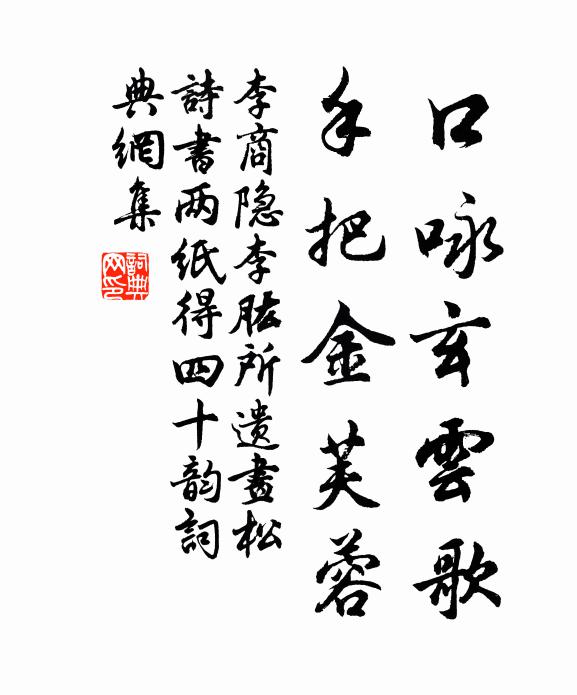 口咏玄雲歌
手把金芙蓉
李商隐李肱所遺畫松
詩書两纸得四十韵詞
典網集
詞典网印